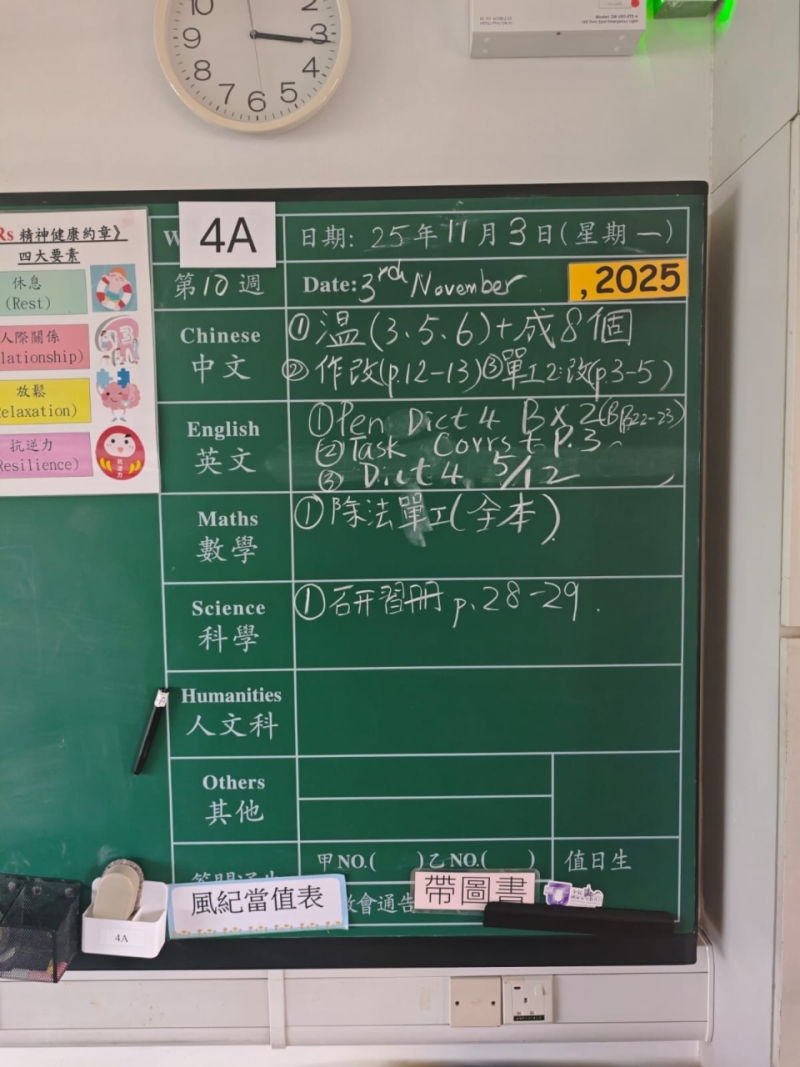 10
9 3
8 4
7 6 5
Rs 精神健康約章》
四大要素
休息
(Rest)
人際關係
lationship)
放鬆
elaxation)
抗逆力
Resilience)
抗逆力
W
4A
日期: 25年11月3日(星期一)
第10週
Date: 3rd November
, 2025
Chinese
中文
① 溫(3、5、6)+成8個
② 作改(p.12-13)③單工2:改(p.3-5)
English
英文
① Pen Dict 4 B x 2 
② Task Corrs + P.3
③ Dict 4, 5/12
Maths
數學
① 除法單工(全本)
Science
科學
① 研習冊 p.28-29.
Humanities
人文科
Others
其他
甲NO.( )乙NO.( )
值日生
會通告
風紀當值表
帶圖書
4A